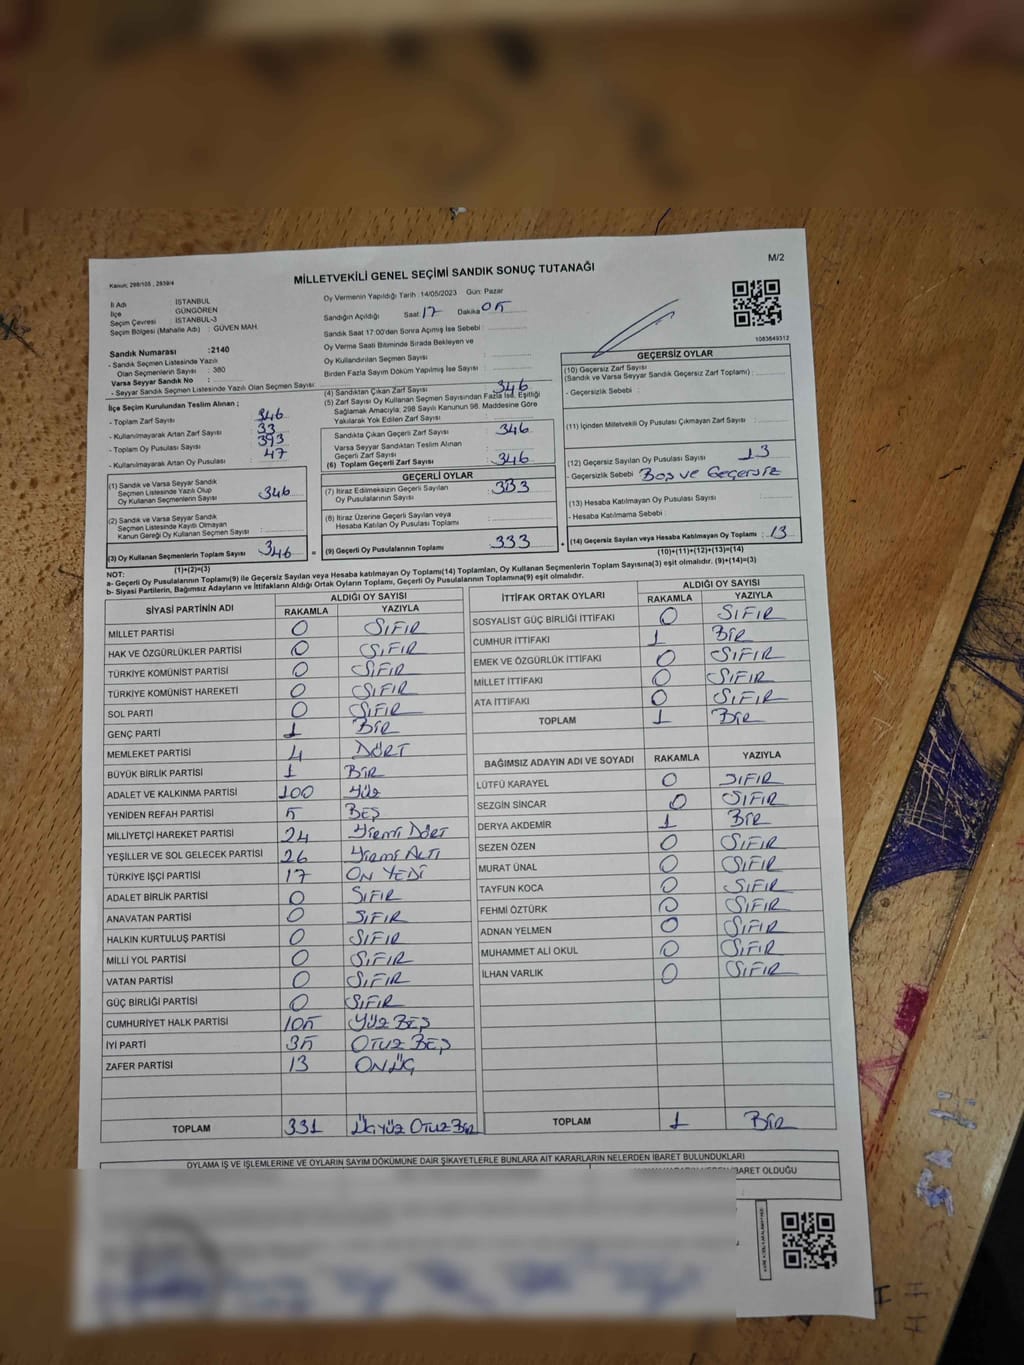 M/2
MİLLETVEKİLİ GENEL SEÇİMİ SANDIK SONUÇ TUTANAĞI
Kanun; 298/105 , 2839/4
İl Adı : İSTANBUL
İlçe : GÜNGÖREN
Seçim Çevresi : İSTANBUL-3
Seçim Bölgesi (Mahalle Adı) : GÜVEN MAH.
Sandık Numarası : 2140
- Sandık Seçmen Listesinde Yazılı
Olan Seçmenlerin Sayısı : 380
Varsa Seyyar Sandık No :
- Seyyar Sandık Seçmen Listesinde Yazılı Olan Seçmen Sayısı
Oy Vermenin Yapıldığı Tarih : 14/05/2023 Gün: Pazar
Sandığın Açıldığı Saat: 17 Dakika 05
Sandık Saat 17:00'den Sonra Açımış İse Sebebi :
Oy Verme Saati Bitiminde Sırada Bekleyen ve
Oy Kullandırılan Seçmen Sayısı :
Birden Fazla Sayım Döküm Yapılmış İse Sayısı :
1083649312
İlçe Seçim Kurulundan Teslim Alınan ;
- Toplam Zarf Sayısı : 346
- Kullanılmayarak Artan Zarf Sayısı : 33
- Toplam Oy Pusulası Sayısı : 393
- Kullanılmayarak Artan Oy Pusulası : 47
(1) Sandık ve Varsa Seyyar Sandık
Seçmen Listesinde Yazılı Olup
Oy Kullanan Seçmenlerin Sayısı : 346
(2) Sandık ve Varsa Seyyar Sandık
Seçmen Listesinde Kayıtlı Olmayan
Kanun Gereği Oy Kullanan Seçmen Sayısı :
(3) Oy Kullanan Seçmenlerin Toplam Sayısı : 346
(1)+(2)=(3)
(4) Sandıktan Çıkan Zarf Sayısı : 346
(5) Zarf Sayısı Oy Kullanan Seçmen Sayısından Fazla İse, Eşitliği
Sağlamak Amacıyla; 298 Sayılı Kanunun 98. Maddesine Göre
Yakılarak Yok Edilen Zarf Sayısı :
Sandıkta Çıkan Geçerli Zarf Sayısı : 346
Varsa Seyyar Sandıktan Teslim Alınan
Geçerli Zarf Sayısı :
(6) Toplam Geçerli Zarf Sayısı : 346
GEÇERLİ OYLAR
(7) İtiraz Edilmeksizin Geçerli Sayılan
Oy Pusulalarının Sayısı : 333
(8) İtiraz Üzerine Geçerli Sayılan veya
Hesaba Katılan Oy Pusulası Toplamı :
= (9) Geçerli Oy Pusulalarının Toplamı : 333
GEÇERSİZ OYLAR
(10) Geçersiz Zarf Sayısı
(Sandık ve Varsa Seyyar Sandık Geçersiz Zarf Toplamı) :
- Geçersizlik Sebebi :
(11) İçinden Milletvekili Oy Pusulası Çıkmayan Zarf Sayısı :
(12) Geçersiz Sayılan Oy Pusulası Sayısı : 13
- Geçersizlik Sebebi : Boş ve Geçersiz
(13) Hesaba Katılmayan Oy Pusulası Sayısı :
- Hesaba Katılmama Sebebi :
+ (14) Geçersiz Sayılan veya Hesaba Katılmayan Oy Toplamı : 13
(10)+(11)+(12)+(13)=(14)
NOT:
a- Geçerli Oy Pusulalarının Toplamı(9) ile Geçersiz Sayılan veya Hesaba katılmayan Oy Toplamı(14) Toplamları, Oy Kullanan Seçmenlerin Toplam Sayısına(3) eşit olmalıdır. (9)+(14)=(3)
b- Siyasi Partilerin, Bağımsız Adayların ve İttifakların Aldığı Ortak Oyların Toplamı, Geçerli Oy Pusulalarının Toplamına(9) eşit olmalıdır.
SİYASİ PARTİNİN ADI ALDIĞI OY SAYISI
RAKAMLA YAZIYLA
MİLLET PARTİSİ 0 SIFIR
HAK VE ÖZGÜRLÜKLER PARTİSİ 0 SIFIR
TÜRKİYE KOMÜNİST PARTİSİ 0 SIFIR
TÜRKİYE KOMÜNİST HAREKETİ 0 SIFIR
SOL PARTİ 0 SIFIR
GENÇ PARTİ 1 BİR
MEMLEKET PARTİSİ 4 DÖRT
BÜYÜK BİRLİK PARTİSİ 1 BİR
ADALET VE KALKINMA PARTİSİ 100 YÜZ
YENİDEN REFAH PARTİSİ 5 BEŞ
MİLLİYETÇİ HAREKET PARTİSİ 24 YİRMİ DÖRT
YEŞİLLER VE SOL GELECEK PARTİSİ 26 YİRMİ ALTI
TÜRKİYE İŞÇİ PARTİSİ 17 ON YEDİ
ADALET BİRLİK PARTİSİ 0 SIFIR
ANAVATAN PARTİSİ 0 SIFIR
HALKIN KURTULUŞ PARTİSİ 0 SIFIR
MİLLİ YOL PARTİSİ 0 SIFIR
VATAN PARTİSİ 0 SIFIR
GÜÇ BİRLİĞİ PARTİSİ 0 SIFIR
CUMHURİYET HALK PARTİSİ 105 YÜZ BEŞ
İYİ PARTİ 35 OTUZ BEŞ
ZAFER PARTİSİ 13 ONÜÇ
TOPLAM 331 ÜÇYÜZ OTUZ BİR
İTTİFAK ORTAK OYLARI ALDIĞI OY SAYISI
RAKAMLA YAZIYLA
SOSYALİST GÜÇ BİRLİĞİ İTTİFAKI 0 SIFIR
CUMHUR İTTİFAKI 1 BİR
EMEK VE ÖZGÜRLÜK İTTİFAKI 0 SIFIR
MİLLET İTTİFAKI 0 SIFIR
ATA İTTİFAKI 0 SIFIR
TOPLAM 1 BİR
BAĞIMSIZ ADAYIN ADI VE SOYADI RAKAMLA YAZIYLA
LÜTFÜ KARAYEL 0 SIFIR
SEZGİN SİNCAR 0 SIFIR
DERYA AKDEMİR 1 BİR
SEZEN ÖZEN 0 SIFIR
MURAT ÜNAL 0 SIFIR
TAYFUN KOCA 0 SIFIR
FEHMİ ÖZTÜRK 0 SIFIR
ADNAN YELMEN 0 SIFIR
MUHAMMET ALİ OKUL 0 SIFIR
İLHAN VARLIK 0 SIFIR
TOPLAM 1 BİR
OYLAMA İŞ VE İŞLEMLERİNE VE OYLARIN SAYIM DÖKÜMÜNE DAİR ŞİKAYETLERLE BUNLARA AİT KARARLARIN NELERDEN İBARET BULUNDUKLARI
İBARET OLDUĞU